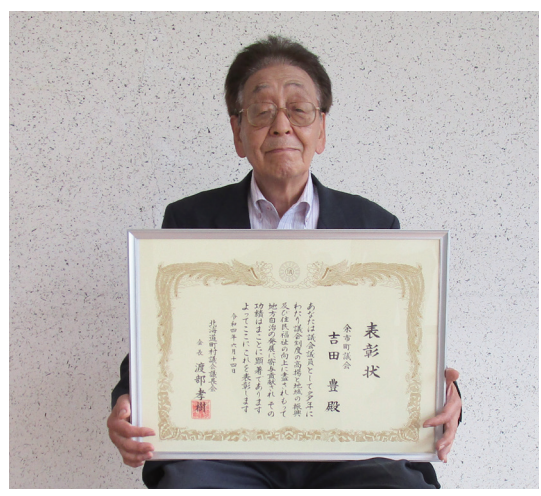 表彰状
余市町議会
吉田 豊 殿
あなたは議会議員として多年に
わたり議会制度の高揚と地域の振興
及び住民福祉の向上に尽されもって
地方自治の発展に寄与貢献されその
功績はまことに顕著であります
よってここにこれを表彰します
令和四年六月十四日
北海道町村議会議長会
会長 渡部孝樹